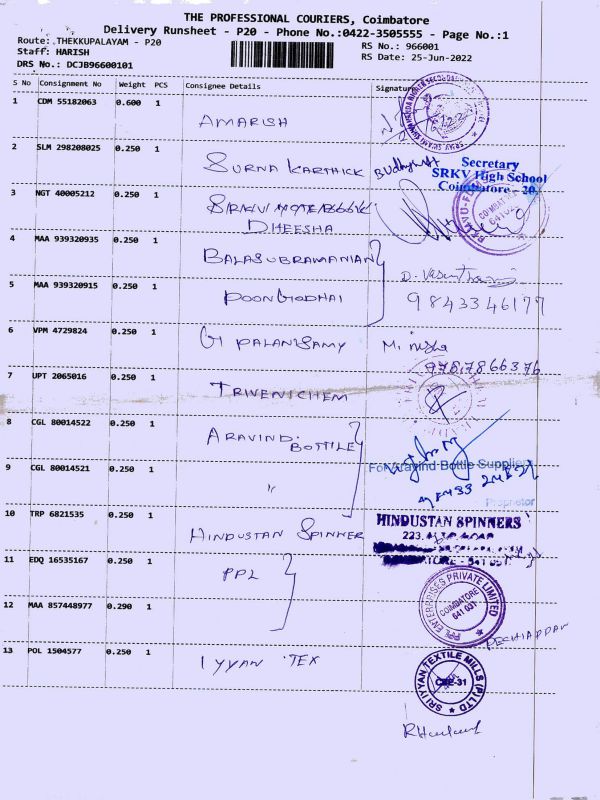 THE PROFESSIONAL COURIERS, Coimbatore
Delivery Runsheet - P20 - Phone No.:0422-3505555 - Page No.:1
Route: THEKKUPALAYAM - P20
RS No.: 966001
Staff: HARISH
RS Date: 25-Jun-2022
DRS No.: DCJB96600101
S No Consignment No Weight PCS Consignee Details Signature
1 CDM 55182063 0.600 1 AMARISH
2 SLM 298208025 0.250 1 SURNA KARTHICK
Secretary
SRKV High School
Coimbatore - 20.
3 NGT 40005212 0.250 1
DHEESHA
COIMBATORE
4 MAA 939320935 0.250 1 BALASUBRAMANIAN
5 MAA 939320915 0.250 1 POONGODHAI
9843346177
6 VPM 4729824 0.250 1 G PALANISAMY M.
9787866376
7 UPT 2065016 0.250 1 TRIVENICHEM
8 CGL 80014522 0.250 1 ARAVIND BOTTILE
For Aravind Bottle Suppliers
9 CGL 80014521 0.250 1 "
Proprietor
10 TRP 6821535 0.250 1 HINDUSTAN SPINNER
HINDUSTAN SPINNERS
11 EDQ 16535167 0.250 1 PPL
PPL ENTERPRISES PRIVATE LIMITED
COIMBATORE
641 031
12 MAA 857448977 0.290 1
13 POL 1504577 0.250 1 IYYAN TEX
SRI IYYAN TEXTILE MILLS (P) LTD
CBE-31